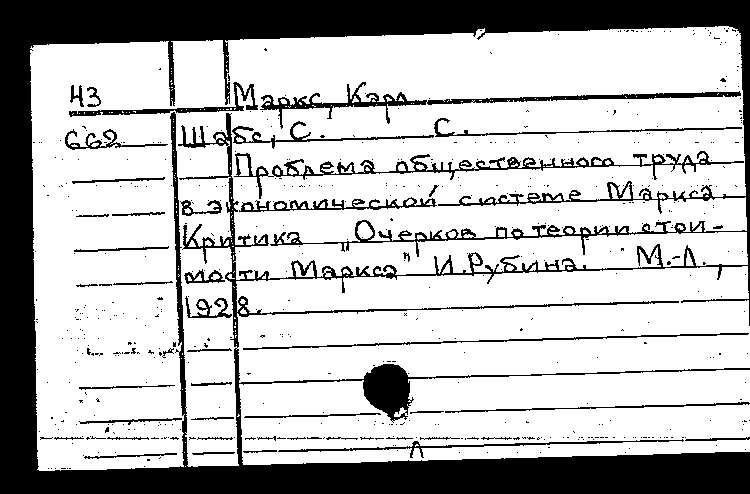 43 Маркс, Карл
669 Шабс, С. С.
Проблема общественного труда
в экономической системе Маркса.
Критика „Очерков по теории стои-
мости Маркса" И.Рубина. М.-Л.,
1928.